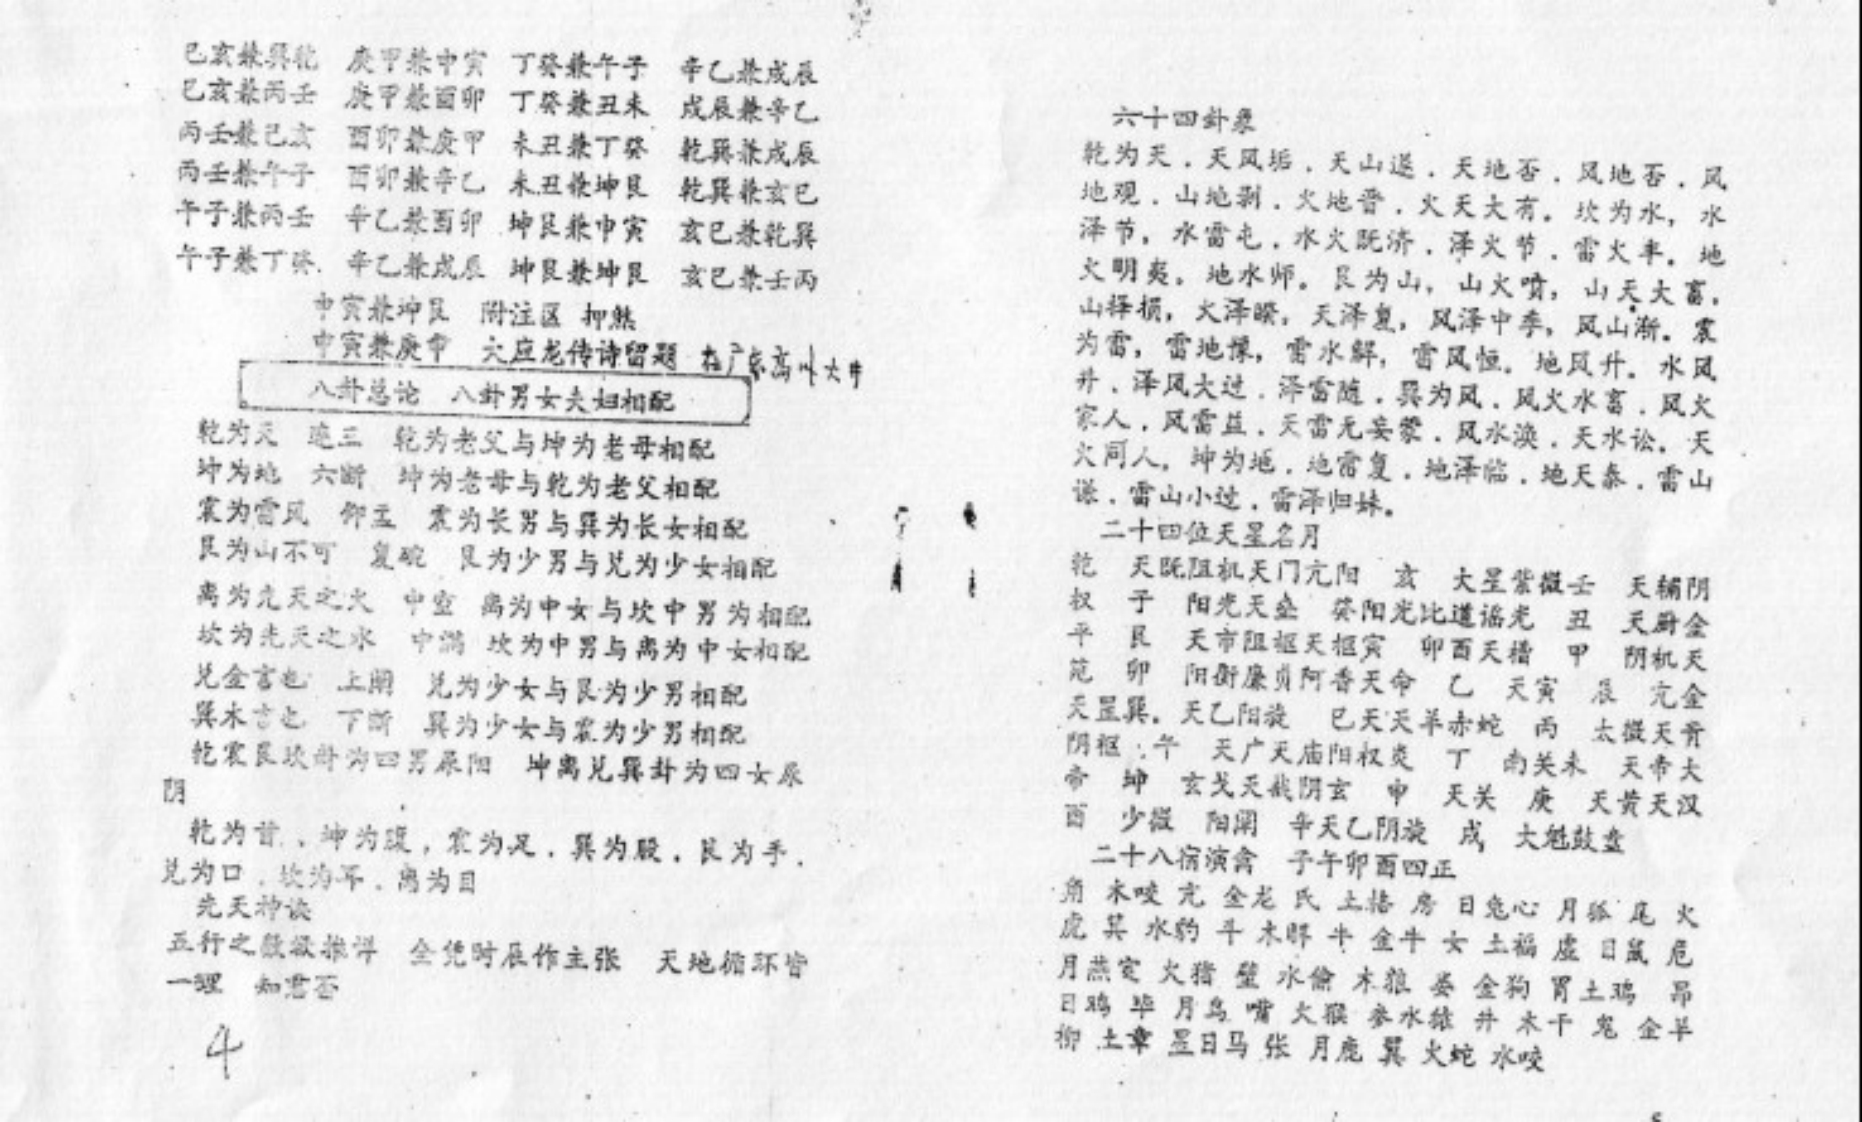 巳亥兼巽乾 庚甲兼申寅 丁癸兼午子 辛乙兼戌辰
巳亥兼丙壬 庚甲兼酉卯 丁癸兼丑未 戌辰兼辛乙
丙壬兼巳亥 酉卯兼庚甲 未丑兼丁癸 乾巽兼戌辰
丙壬兼午子 酉卯兼辛乙 未丑兼坤艮 乾巽兼亥巳
午子兼丙壬 辛乙兼酉卯 坤艮兼申寅 亥巳兼乾巽
午子兼丁癸 辛乙兼戌辰 坤艮兼坤艮 亥巳兼壬丙
申寅兼坤艮 附注区 押然
申寅兼庚甲 六应龙传诗留题 在广东高州大井
八卦总论 八卦男女夫妇相配
乾为天 连三 乾为老父与坤为老母相配
坤为地 六断 坤为老母与乾为老父相配
震为雷风 仰盂 震为长男与巽为长女相配
艮为山不可 复碗 艮为少男与兑为少女相配
离为先天之火 中空 离为中女与坎中男为相配
坎为先天之水 中满 坎为中男与离为中女相配
兑金言也 上阙 兑为少女与艮为少男相配
巽木言也 下断 巽为少女与震为少男相配
乾震艮坎卦为四男属阳 坤离兑巽卦为四女属
阴
乾为首，坤为腹，震为足．巽为股．艮为手．
兑为口．坎为耳．离为目
先天神诀
五行之数掀推详 全凭时辰作主张 天地循环皆
一理 知君否
4
六十四卦象
乾为天．天风垢．天山遁．天地否．风地否．风
地观．山地剥．火地晋．火天大有．坎为水，水
泽节，水雷屯．水火既济．泽火节．雷火丰．地
火明夷，地水师．艮为山，山火喷，山天大富，
山择损，火泽暌，天泽复，风泽中季，风山渐．震
为雷，雷地懔，雷水解，雷风恒．地风升．水风
井．泽风大过．泽雷随．巽为风．风火水畜．风火
家人．风雷益．天雷无妄蒙．风水涣．天水讼．天
火同人．坤为地．地雷复．地泽临．地天泰．雷山
谦．雷山小过．雷泽归妹。
二十四位天星名月
乾 天既阻机天门亢阳 亥 大星紫微壬 天辅阴
权 子 阳光天垒 癸阳光比道谣光 丑 天厨金
平 艮 天市阻枢天枢寅 卯酉天槽 甲 阴机天
范 卯 阳衡廉贞阿香天命 乙 天寅 辰 亢金
天罡巽．天乙阳旋 巳天天羊赤蛇 丙 太微天胥
阴枢．午 天广天庙阳权炎 丁 南关未 天帝大
帝 坤 玄戈天哉阴玄 申 天关 庚 天黄天汉
酉 少微 阳阙 辛天乙阴旋 戌 大魁鼓盘
二十八宿演禽 子午卯酉四正
角 木咬 亢 金龙 氏 土格 房 日兔心 月狐 尾 火
虎 萁 水豹 斗 木 牛 金牛 女 土福 虚 日鼠 危
月燕室 火猪 壁 水偷 木狼 娄 金狗 胃土鸡 昂
日鸡 毕 月乌 嘴 火猴 参水猿 井 木干 鬼 金羊
柳 土章 星日马 张 月鹿 翼 火蛇 水咬